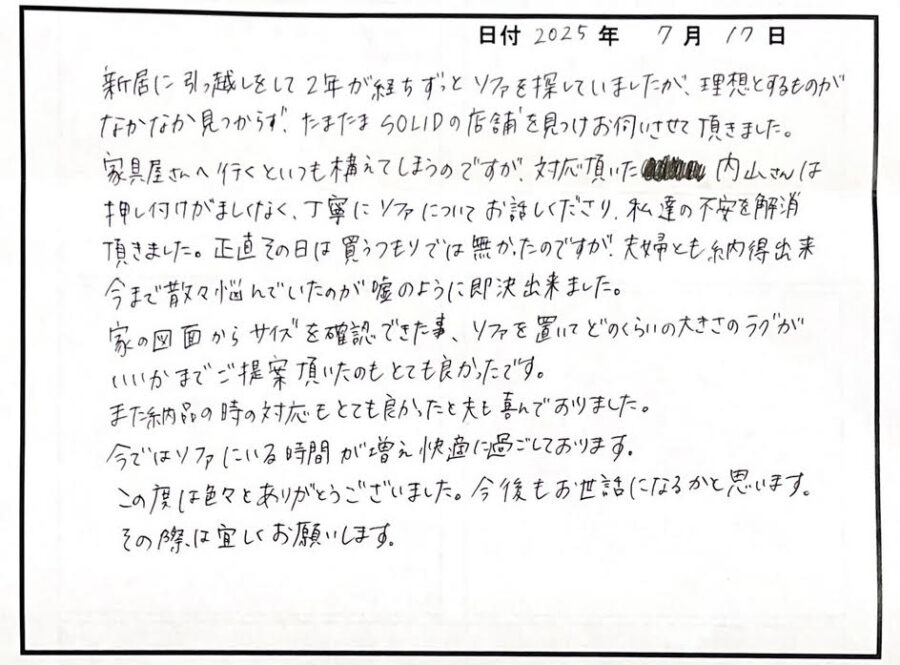 日付 2025 年 7 月 17 日
新居に引っ越しをして2年が経ちずっとソファを探していましたが、理想とするものが
なかなか見つからず、たまたまSOLIDの店舗を見つけお伺いさせて頂きました。
家具屋さんへ行くといつも構えてしまうのですが、対応頂いた 内山さんは
押し付けがましくなく、丁寧にソファについてお話しくださり、私達の不安を解消
頂きました。正直その日は買うつもりでは無かったのですが、夫婦とも納得出来
今まで散々悩んでいたのが嘘のように即決出来ました。
家の図面からサイズを確認できた事、ソファを置いてどのくらいの大きさのラグが
いいかまでご提案頂いたのもとても良かったです。
また納品の時の対応もとても良かったと夫も喜んでおりました。
今ではソファにいる時間が増え快適に過ごしております。
この度は色々とありがとうございました。今後もお世話になるかと思います。
その際は宜しくお願いします。